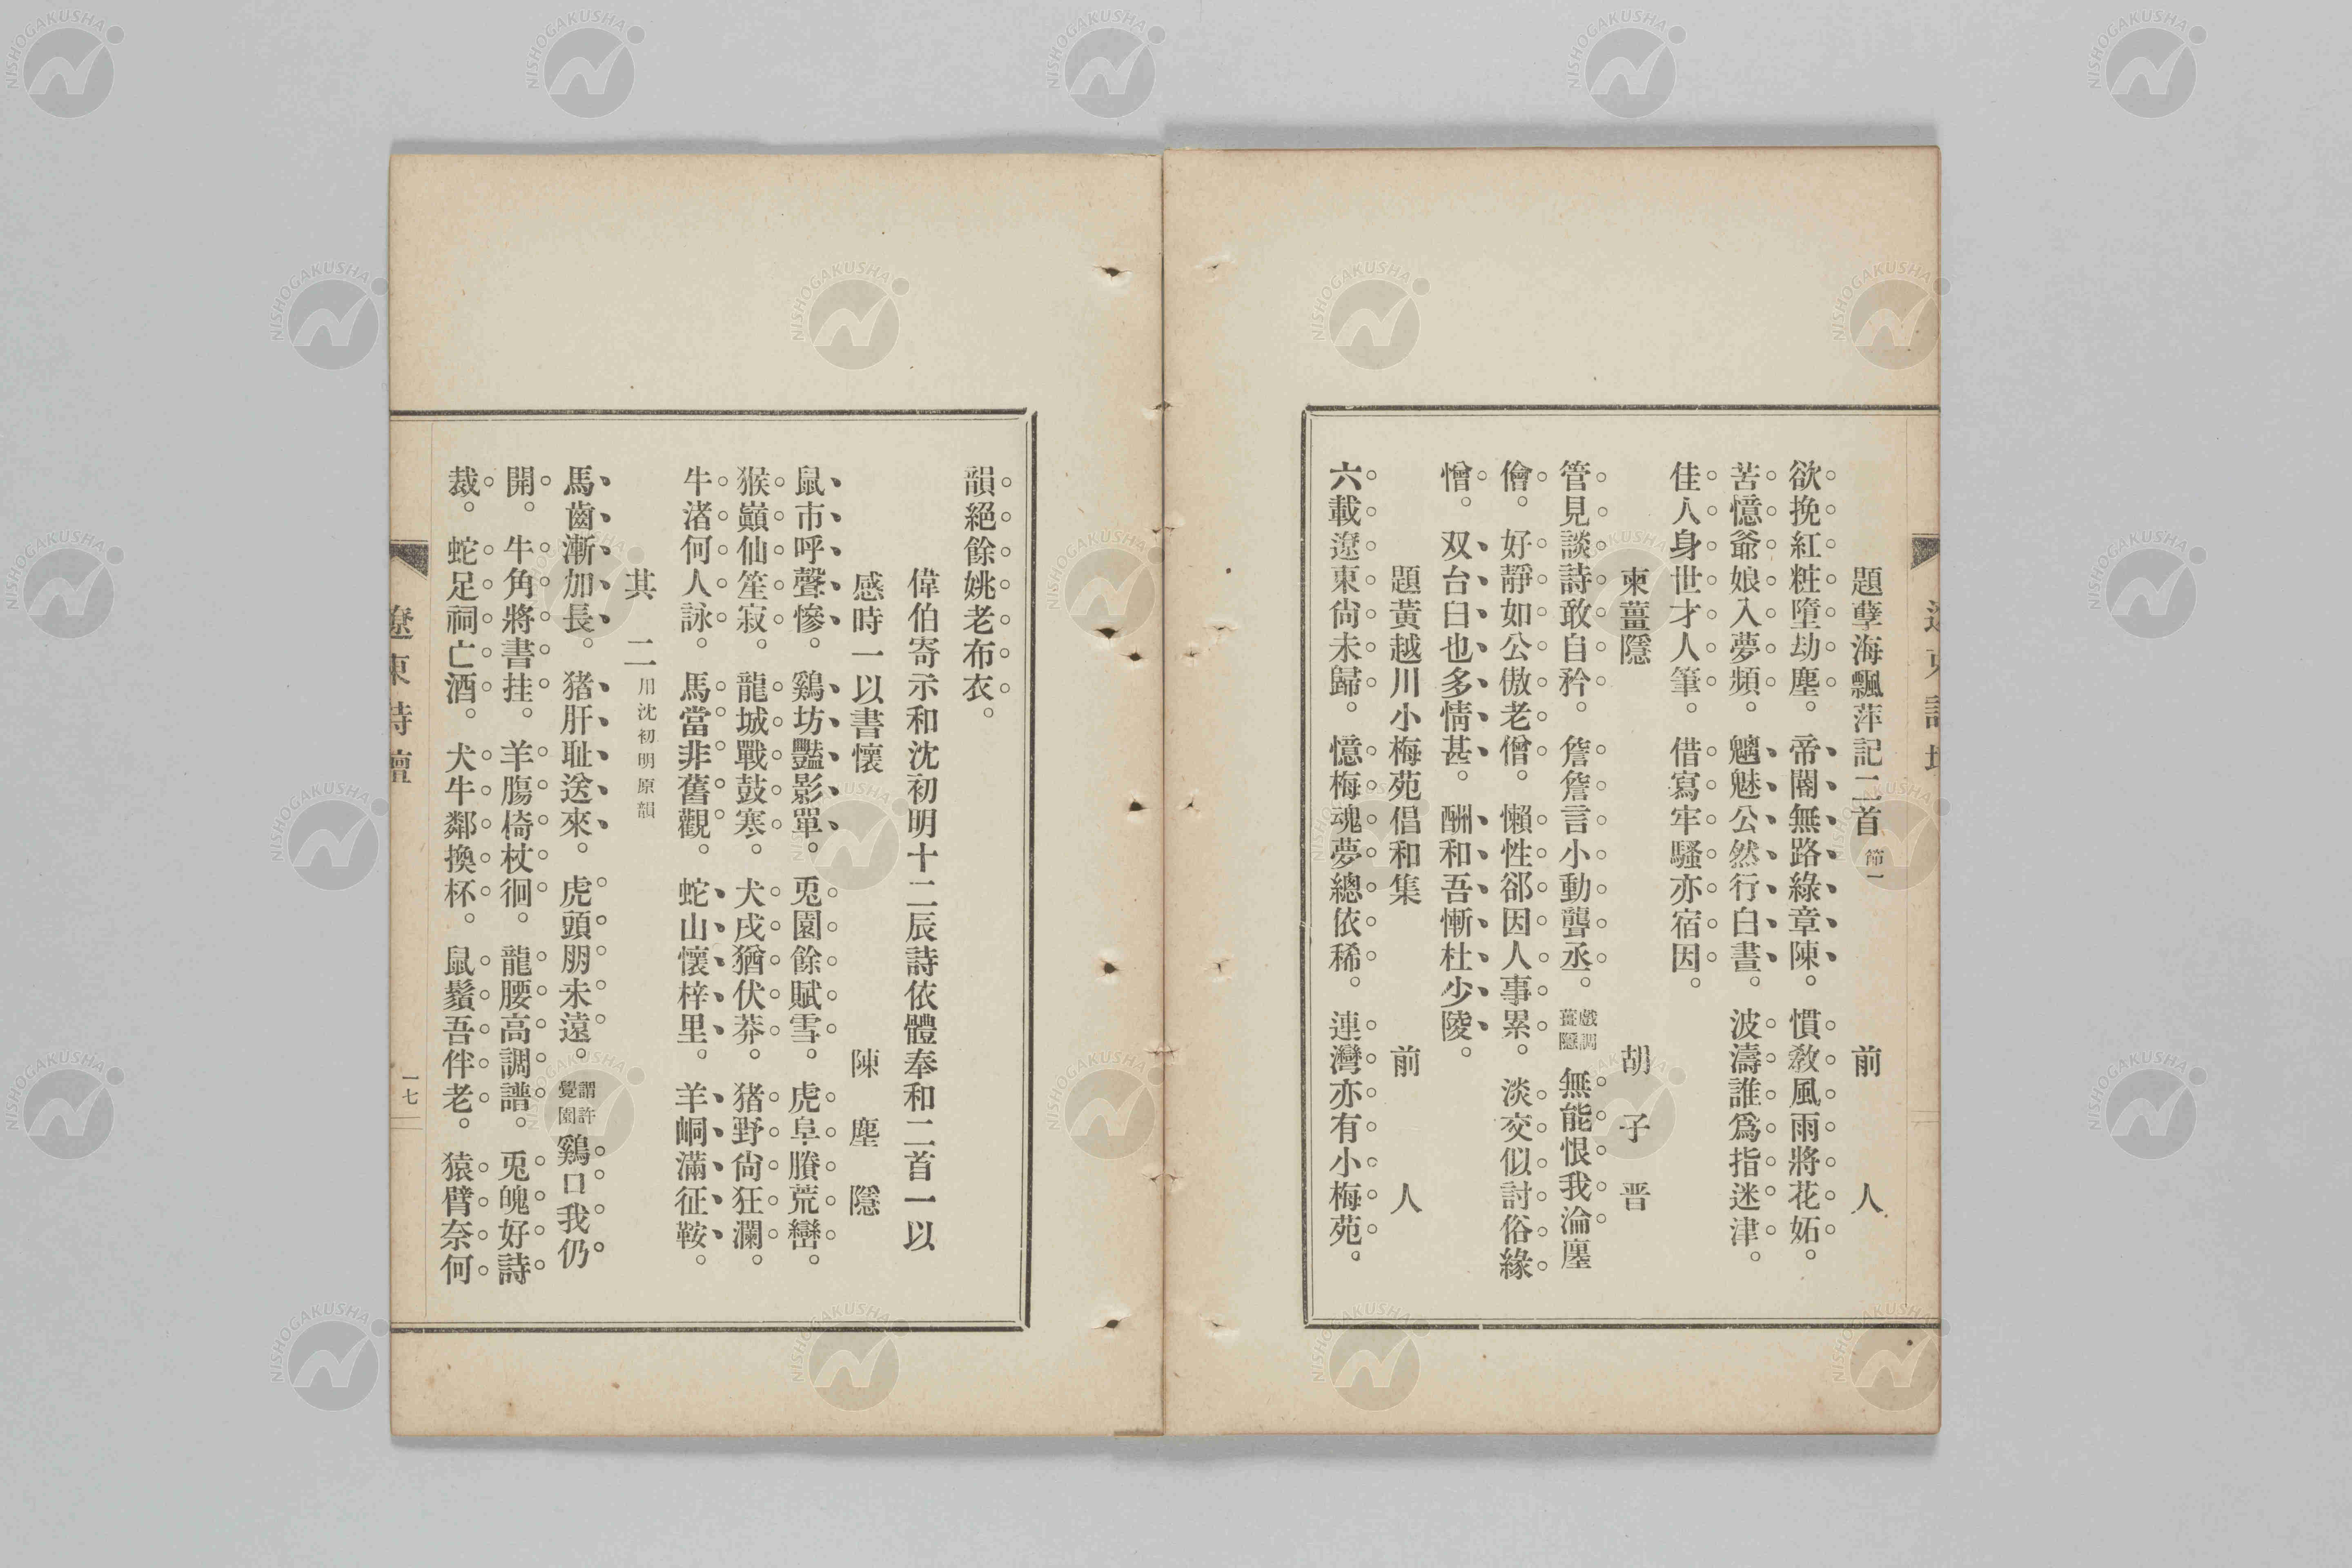 題孽海飄萍記二首 節一 前人
欲挽紅粧墮劫塵。帝閽無路綠章陳。慣教風雨將花妬。
苦憶爺娘入夢頻。魑魅公然行白晝。波濤誰爲指迷津。
佳人身世才人筆。借寫牢騷亦宿因。
柬薑隱 胡子晋
管見談詩敢自矜。詹詹言小動聾丞。戲調薑隱無能恨我淪廛
儈。好靜如公傲老僧。懶性郤因人事累。淡交似討俗緣
憎。双台白也多情甚。酬和吾慚杜少陵。
題黃越川小梅苑倡和集 前人
六載遼東尙未歸。憶梅魂夢總依稀。連灣亦有小梅苑。
韻絕餘姚老布衣。
偉伯寄示和沈初明十二辰詩依體奉和二首一以
感時一以書懷 陳塵隱
鼠市呼聲慘。鷄坊豔影單。兎園餘賦雪。虎阜賸荒巒。
猴巔仙笙寂。龍城戰鼓寒。犬戌猶伏莽。猪野尙狂瀾。
牛渚何人詠。馬當非舊觀。蛇山懷梓里。羊峒滿征鞍。
其二 用沈初明原韻
馬齒漸加長。猪肝耻送來。虎頭朋未遠。謂許覺園鷄口我仍
開。牛角將書挂。羊膓椅杖徊。龍腰高調譜。兎魄好詩
裁。蛇足祠亡酒。犬牛鄰換杯。鼠鬚吾伴老。猿臂奈何
遼東詩壇
一七
NISHOGAKUSHA